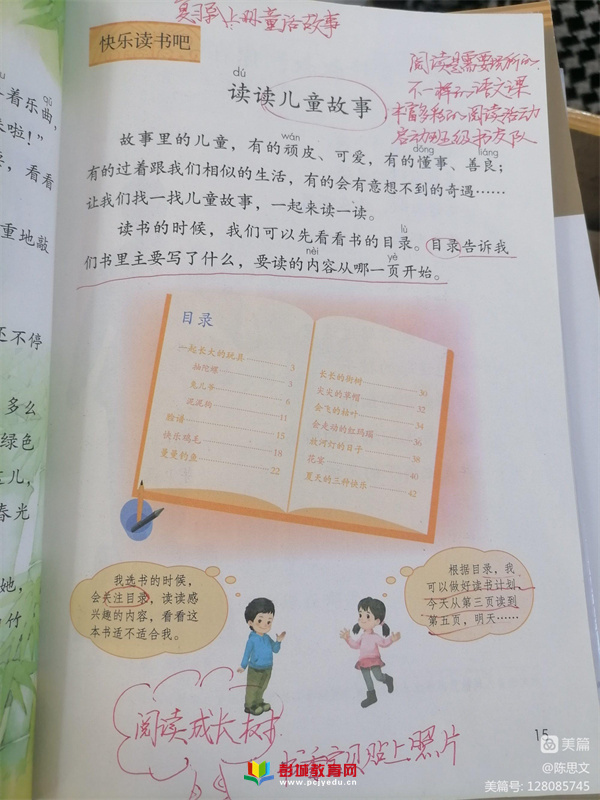 复习单上册童话故事
快乐读书吧
阅读是需要
不一样的语文课
丰富多彩的阅读活动
启动班级书友队
dú
读读儿童故事
wán
故事里的儿童，有的顽皮、可爱，有的懂事、善良；
dǒng liáng
有的过着跟我们相似的生活，有的会有意想不到的奇遇……
让我们找一找儿童故事，一起来读一读。
lù
读书的时候，我们可以先看看书的目录。目录告诉我
nèi yè
们书里主要写了什么，要读的内容从哪一页开始。
目录
一起长大的玩具 3
抽陀螺 3
兔儿爷 6
泥泥狗 11
脸谱 15
快乐鸡毛 18
曼曼钓鱼 22
长长的街树 30
尖尖的草帽 32
会飞的枯叶 34
会走动的红玛瑙 36
放河灯的日子 38
花宴 40
夏天的三种快乐 42
我选书的时候，
会关注目录，读读感
兴趣的内容，看看这
本书适不适合我。
根据目录，我
可以做好读书计划，
今天从第三页读到
第五页，明天……
阅读成长树
贴上照片
15
u qǔ
着乐曲，
来啦！”
，看看
重地敲
还不停
多么
绿色
这儿，
春光
她，
竹，
彭城教育网
www.pcjyedu.cn
美篇
@陈思文
美篇号：128085745